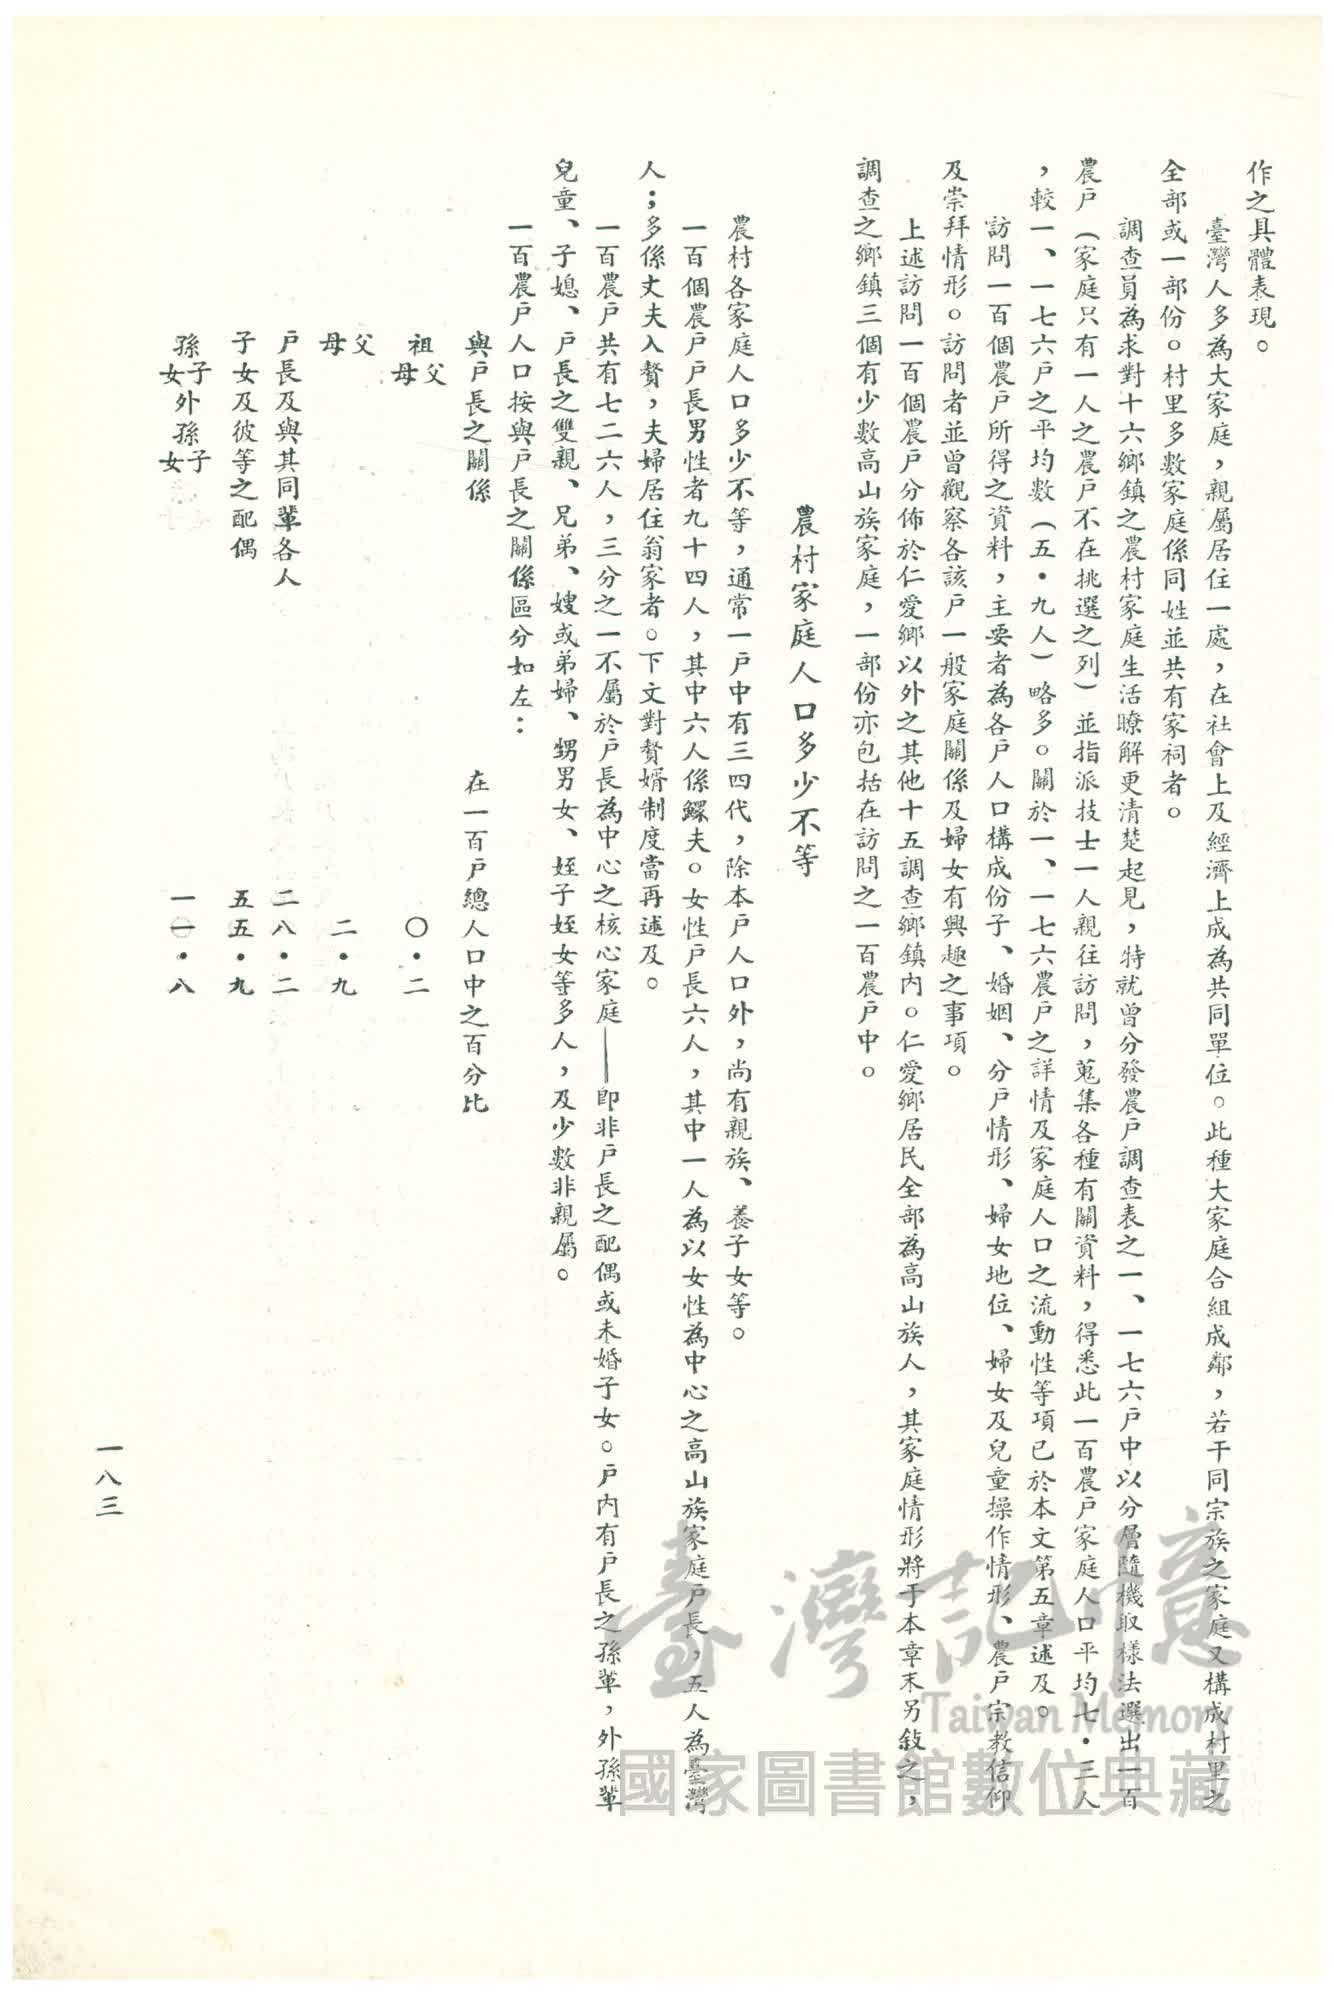 作之具體表現。
臺灣人多為大家庭，親屬居住一處，在社會上及經濟上成為共同單位。此種大家庭合組成鄰，若干同宗族之家庭又構成村里之
全部或一部份。村里多數家庭係同姓並共有家祠者。
調查員為求對十六鄉鎮之農村家庭生活瞭解更清楚起見，特就曾分發農戶調查表之一、一七六戶中以分層隨機取樣法選出一百
農戶（家庭只有一人之農戶不在挑選之列）並指派技士一人親往訪問，蒐集各種有關資料，得悉此一百農戶家庭人口平均七・三人
，較一、一七六戶之平均數（五・九人）略多。關於一、一七六農戶之詳情及家庭人口之流動性等項已於本文第五章述及。
訪問一百個農戶所得之資料，主要者為各戶人口構成份子、婚姻、分戶情形、婦女地位、婦女及兒童操作情形、農戶宗教信仰
及崇拜情形。訪問者並曾觀察各該戶一般家庭關係及婦女有興趣之事項。
上述訪問一百個農戶分佈於仁愛鄉以外之其他十五調查鄉鎮內。仁愛鄉居民全部為高山族人，其家庭情形將于本章末另敍之，
調查之鄉鎮三個有少數高山族家庭，一部份亦包括在訪問之一百農戶中。
農村家庭人口多少不等
農村各家庭人口多少不等，通常一戶中有三四代，除本戶人口外，尚有親族、養子女等。
一百個農戶戶長男性者九十四人，其中六人係鰥夫。女性戶長六人，其中一人為以女性為中心之高山族家庭戶長，五人為臺灣
人；多係丈夫入贅，夫婦居住翁家者。下文對贅婿制度當再述及。
一百農戶共有七二六人，三分之一不屬於戶長為中心之核心家庭——即非戶長之配偶或未婚子女。戶內有戶長之孫輩，外孫輩
兒童、子媳、戶長之雙親、兄弟、嫂或弟婦、甥男女、姪子姪女等多人，及少數非親屬。
一百農戶人口按與戶長之關係區分如左：
與戶長之關係 在一百戶總人口中之百分比
祖父母 〇・二
父母 二・九
戶長及與其同輩各人 二八・二
子女及彼等之配偶 五五・九
孫子女外孫子女 一一・八
一八三
臺灣記憶
Taiwan Memory
國家圖書館數位典藏